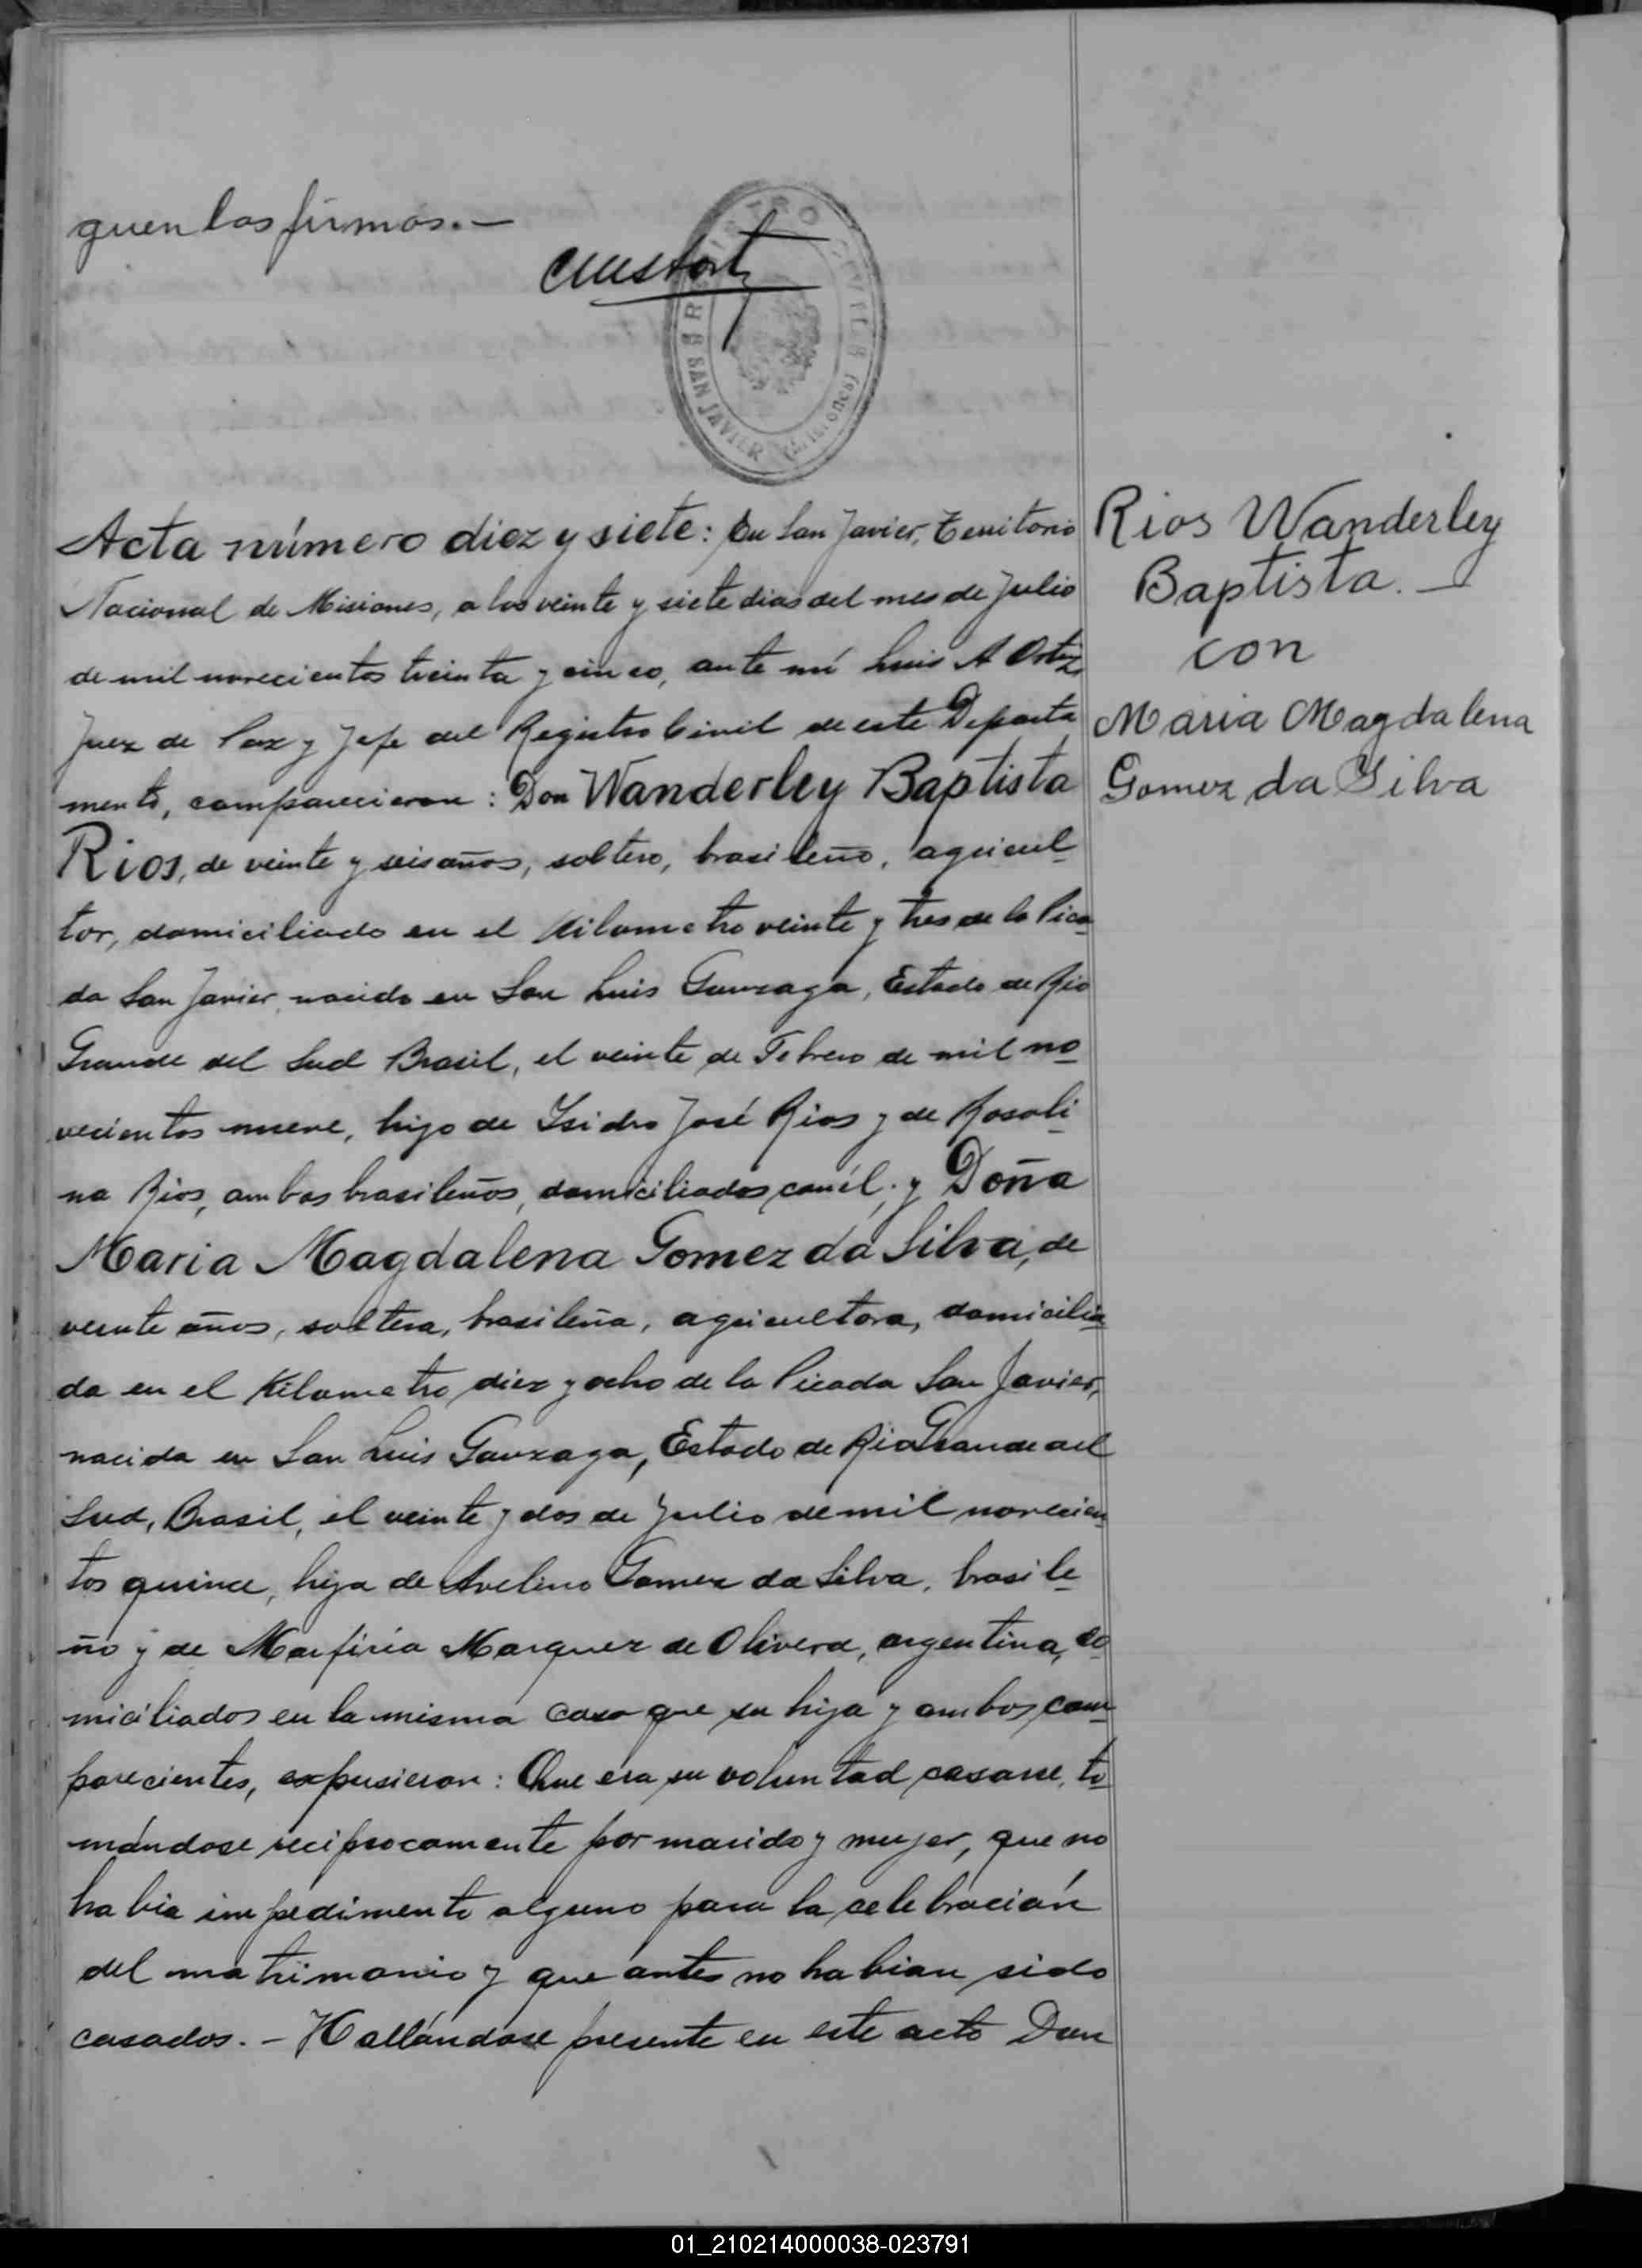 quen las firmas.—
REGISTRO CIVIL
SAN JAVIER (Misiones)
Acta número diez y siete: En San Javier, Territorio
Nacional de Misiones, a los veinte y siete dias del mes de Julio
de mil novecientos treinta y cinco, ante mi Luis A Ortiz
Juez de Paz y Jefe del Registro Civil de este Departa
mento, comparecieron: Don Wanderley Baptista
Rios, de veinte y seis años, soltero, brasileño, agricul-
tor, domiciliado en el Kilometro veinte y tres de la Pica-
da San Javier, nacido en San Luis Gonzaga, Estado de Rio
Grande del Sud Brasil, el veinte de Febrero de mil no-
vecientos nueve, hijo de Isidro José Rios y de Rosali-
na Rios, ambos brasileños, domiciliados con él; y Doña
Maria Magdalena Gomez da Silva, de
veinte años, soltera, brasileña, agricultora, domicilia-
da en el Kilometro diez y ocho de la Picada San Javier,
nacida en San Luis Gonzaga, Estado de Rio Grande del
Sud, Brasil, el veinte y dos de Julio de mil novecien-
tos quince, hija de Avelino Gomez da Silva, brasile-
ño y de Marfiria Marquez de Olivera, argentina, do-
miciliados en la misma casa que su hija y ambos com-
parecientes, expusieron: Que era su voluntad casarse, to-
mándose reciprocamente por marido y mujer, que no
habia impedimento alguno para la celebración
del matrimonio y que antes no habian sido
casados. — Hallándose presente en este acto Don
Rios Wanderley
Baptista. —
con
Maria Magdalena
Gomez da Silva
01_210214000038-023791